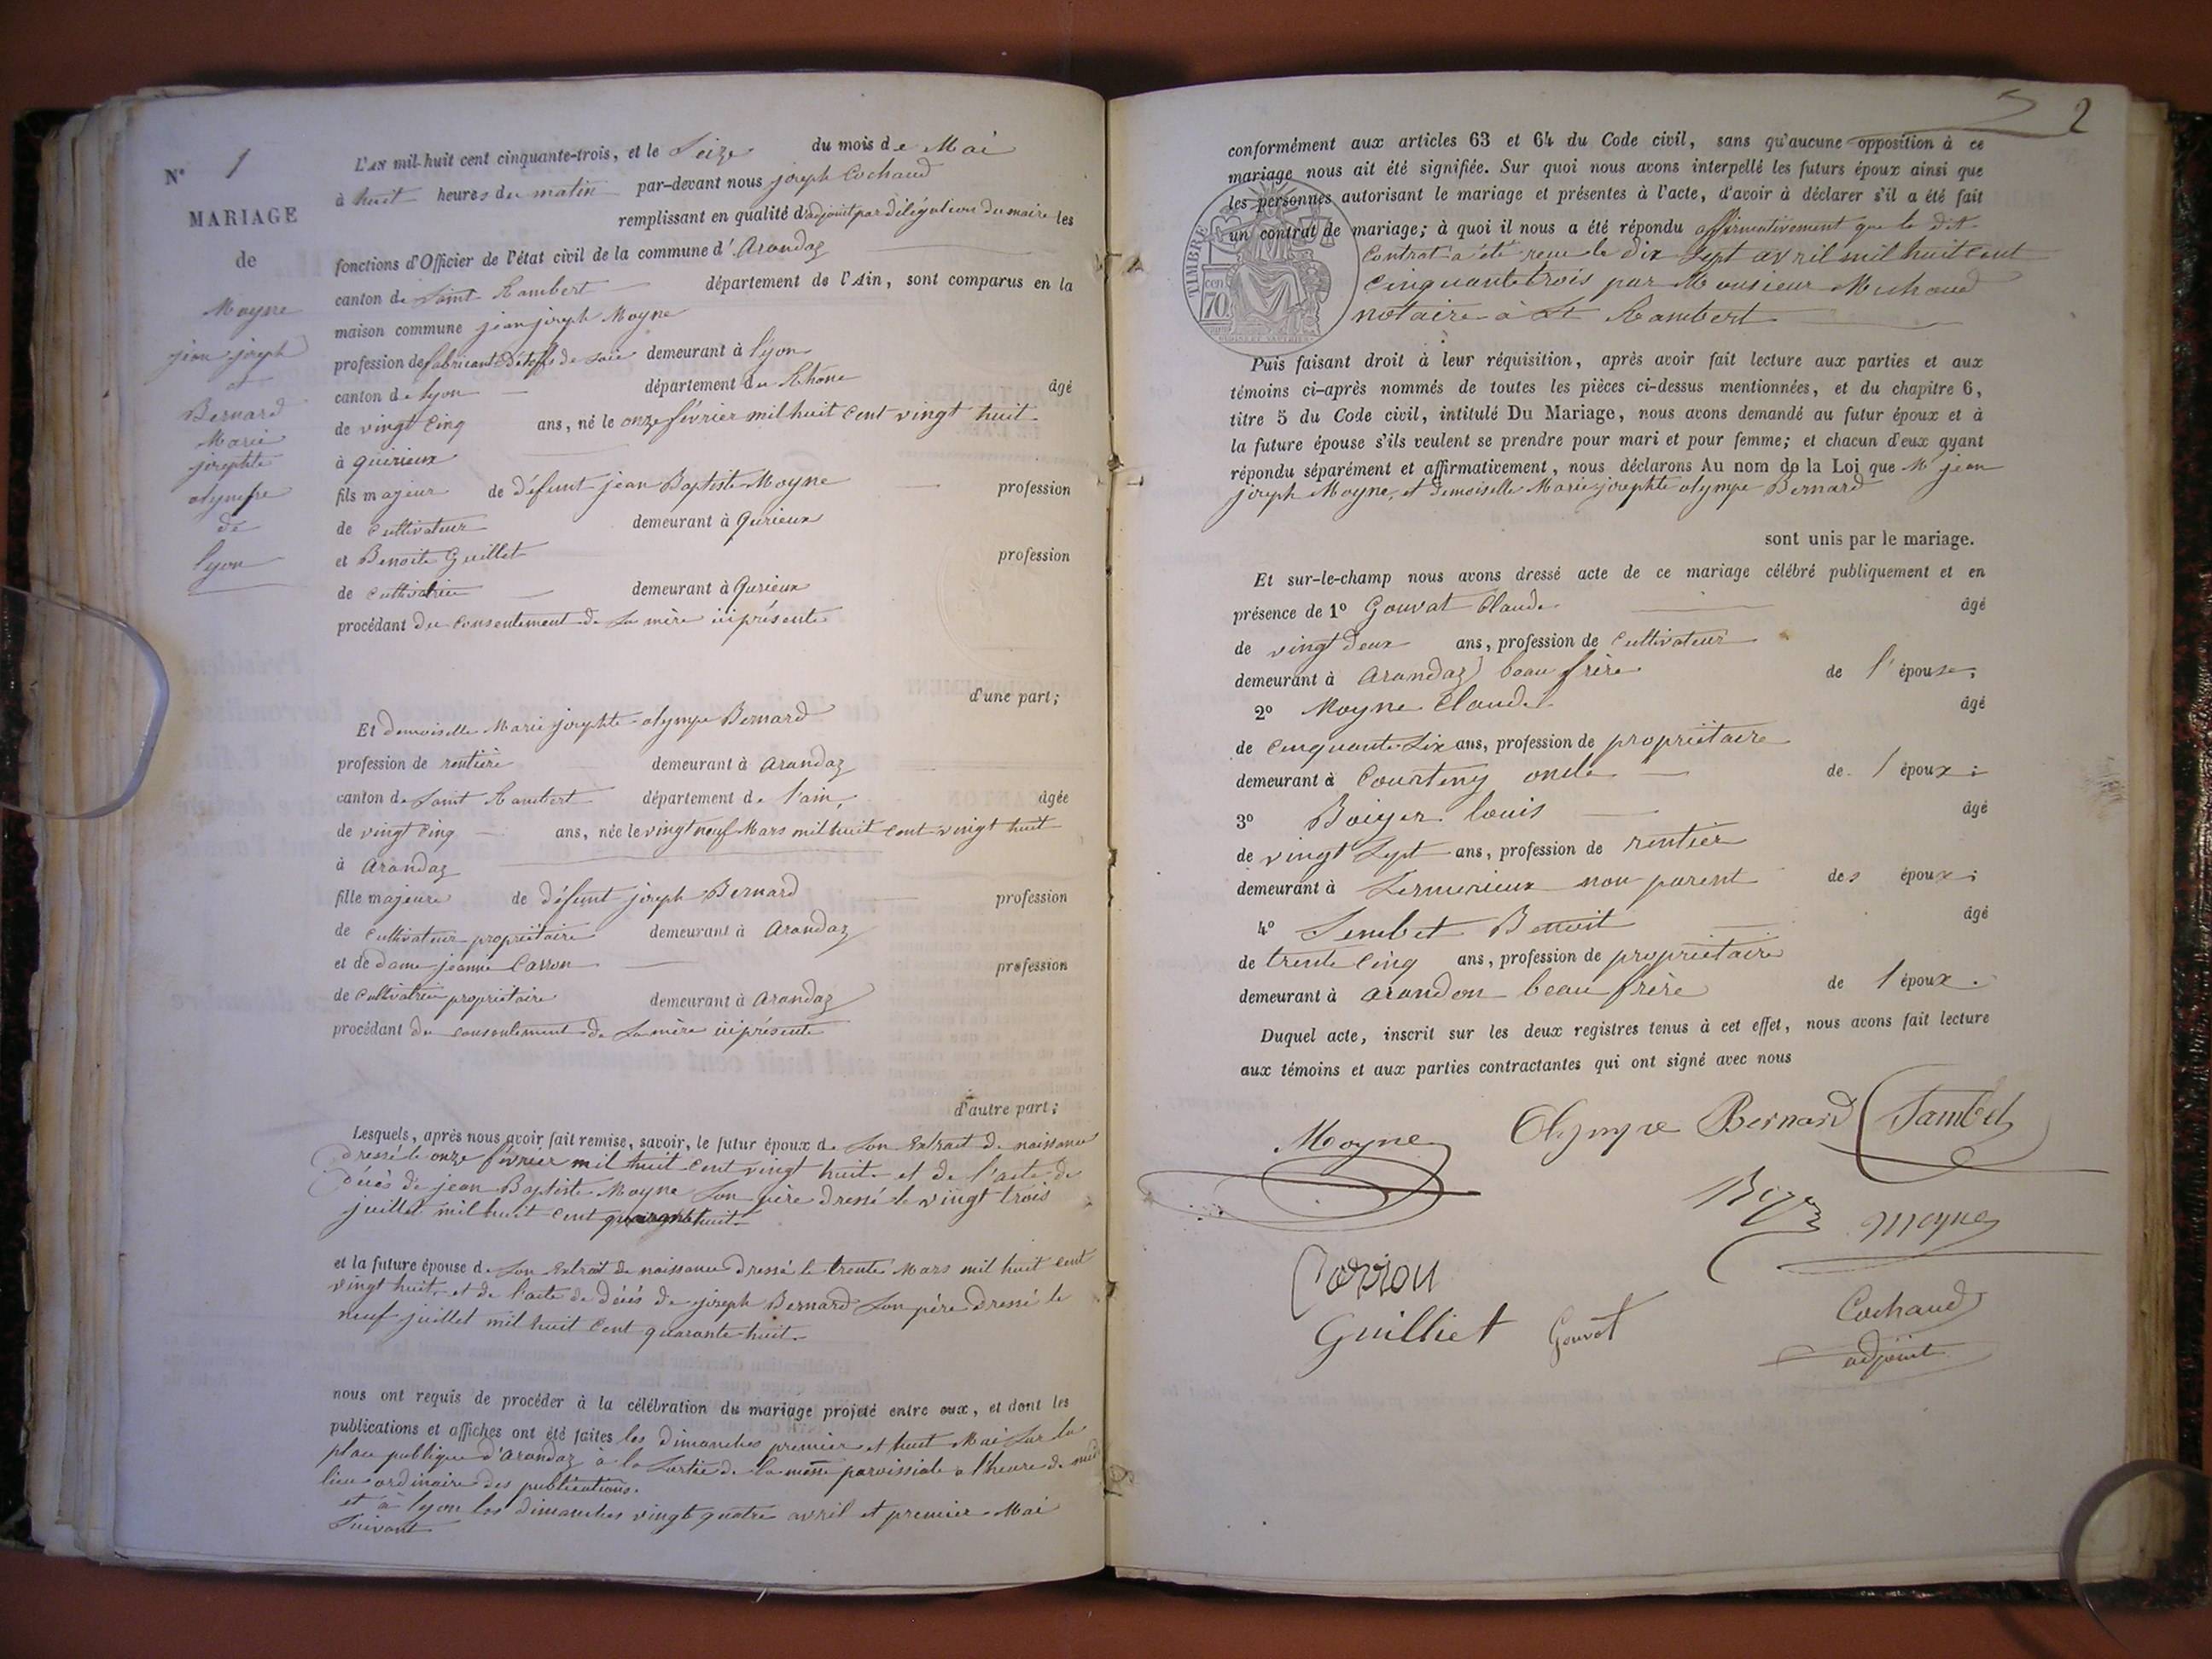 N° 1
MARIAGE
de
Moyne
jean joseph
et
Bernard
Marie
josephte
olympe
de
lyon
L'AN mil-huit cent cinquante-trois, et le Seize du mois de Mai
à huit heures du matin par-devant nous joseph Cochaud
remplissant en qualité d'adjoint par délégation du maire les
fonctions d'Officier de l'état civil de la commune d'Arandaz
canton de Saint Rambert département de l'Ain, sont comparus en la
maison commune jean joseph Moyne
profession de fabricant d'étoffes de soie demeurant à lyon
canton de lyon département du Rhône âgé
de vingt cinq ans, né le onze février mil huit cent vingt huit
à quirieux
fils majeur de défunt jean Baptiste Moyne profession
de cultivateur demeurant à Quirieux
et Benoite Guillet profession
de cultivatrice demeurant à Quirieux
procédant du consentement de sa mère ici présente
d'une part;
Et demoiselle Marie josephte olympe Bernard
profession de rentière demeurant à Arandaz
canton de Saint Rambert département de l'ain, âgée
de vingt cinq ans, née le vingt neuf Mars mil huit cent vingt huit
à Arandaz
fille majeure de défunt joseph Bernard profession
de cultivateur propriétaire demeurant à Arandaz
et de dame jeanne Carron profession
de cultivatrice propriétaire demeurant à Arandaz
procédant du consentement de sa mère ici présente
d'autre part;
Lesquels, après nous avoir fait remise, savoir, le futur époux de son extrait de naissance
dressé le onze février mil huit cent vingt huit et de l'acte de
décès de jean Baptiste Moyne son père dressé le vingt trois
juillet mil huit cent quarante huit
et la future épouse de son extrait de naissance dressé le trente Mars mil huit cent
vingt huit et de l'acte de décès de joseph Bernard son père dressé le
neuf juillet mil huit cent quarante huit.
nous ont requis de procéder à la célébration du mariage projeté entre eux, et dont les
publications et affiches ont été faites les dimanches premier et huit Mai sur la
place publique d'Arandaz à la sortie de la messe paroissiale à l'heure de midi
lieu ordinaire des publications.
et à lyon les dimanches vingt quatre avril et premier Mai
suivant
2
conformément aux articles 63 et 64 du Code civil, sans qu'aucune opposition à ce
mariage nous ait été signifiée. Sur quoi nous avons interpellé les futurs époux ainsi que
les personnes autorisant le mariage et présentes à l'acte, d'avoir à déclarer s'il a été fait
un contrat de mariage; à quoi il nous a été répondu affirmativement que le dit
contrat a été reçu le dix Sept avril mil huit cent
cinquante trois par Monsieur Michaud
notaire à St Rambert
TIMBRE
cen
70
Puis faisant droit à leur réquisition, après avoir fait lecture aux parties et aux
témoins ci-après nommés de toutes les pièces ci-dessus mentionnées, et du chapitre 6,
titre 5 du Code civil, intitulé Du Mariage, nous avons demandé au futur époux et à
la future épouse s'ils veulent se prendre pour mari et pour femme; et chacun d'eux ayant
répondu séparément et affirmativement, nous déclarons Au nom de la Loi que Mr jean
joseph Moyne, et demoiselle Marie josephte olympe Bernard
sont unis par le mariage.
Et sur-le-champ nous avons dressé acte de ce mariage célébré publiquement et en
présence de 1° Gouvat Claude âgé
de vingt deux ans, profession de Cultivateur
demeurant à Arandaz beau frère de l'épouse;
2° Moyne Claude âgé
de cinquante six ans, profession de propriétaire
demeurant à Courteny oncle de l époux;
3° louis âgé
de vingt sept ans, profession de rentier
demeurant à Sermerieux non parent des époux;
4° Benoit âgé
de trente cinq ans, profession de propriétaire
demeurant à arandon beau frère de l époux.
Duquel acte, inscrit sur les deux registres tenus à cet effet, nous avons fait lecture
aux témoins et aux parties contractantes qui ont signé avec nous
Moyne Olympe Bernard Sambet
Moyne
Carron
Guilliet Gouvat
Cochaud
adjoint